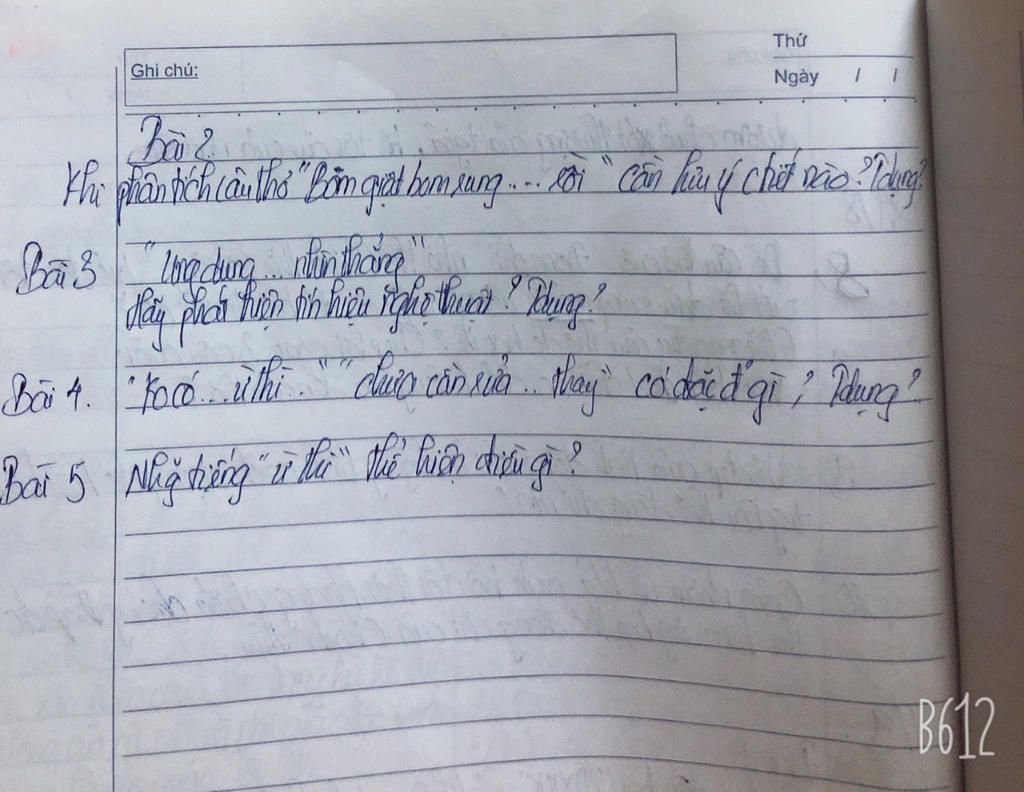 Thứ
Ghi chú:
Ngày / /
Bài 2.
Khi phân tích câu thơ "Bom giật bom rung .... rồi" cần lưu ý chtiết nào? Tdụng?
Bài 3 "Ung dung ... nhìn thẳng"
Hãy phát hiện tín hiệu nghệ thuật? Tdụng?
Bài 4. "Ko có ... ừ thì .." "chưa cần rửa .. thay" có đặc đ' gì, Tdụng?
Bài 5 Những tiếng "ừ thì" thể hiện điều gì?
B612